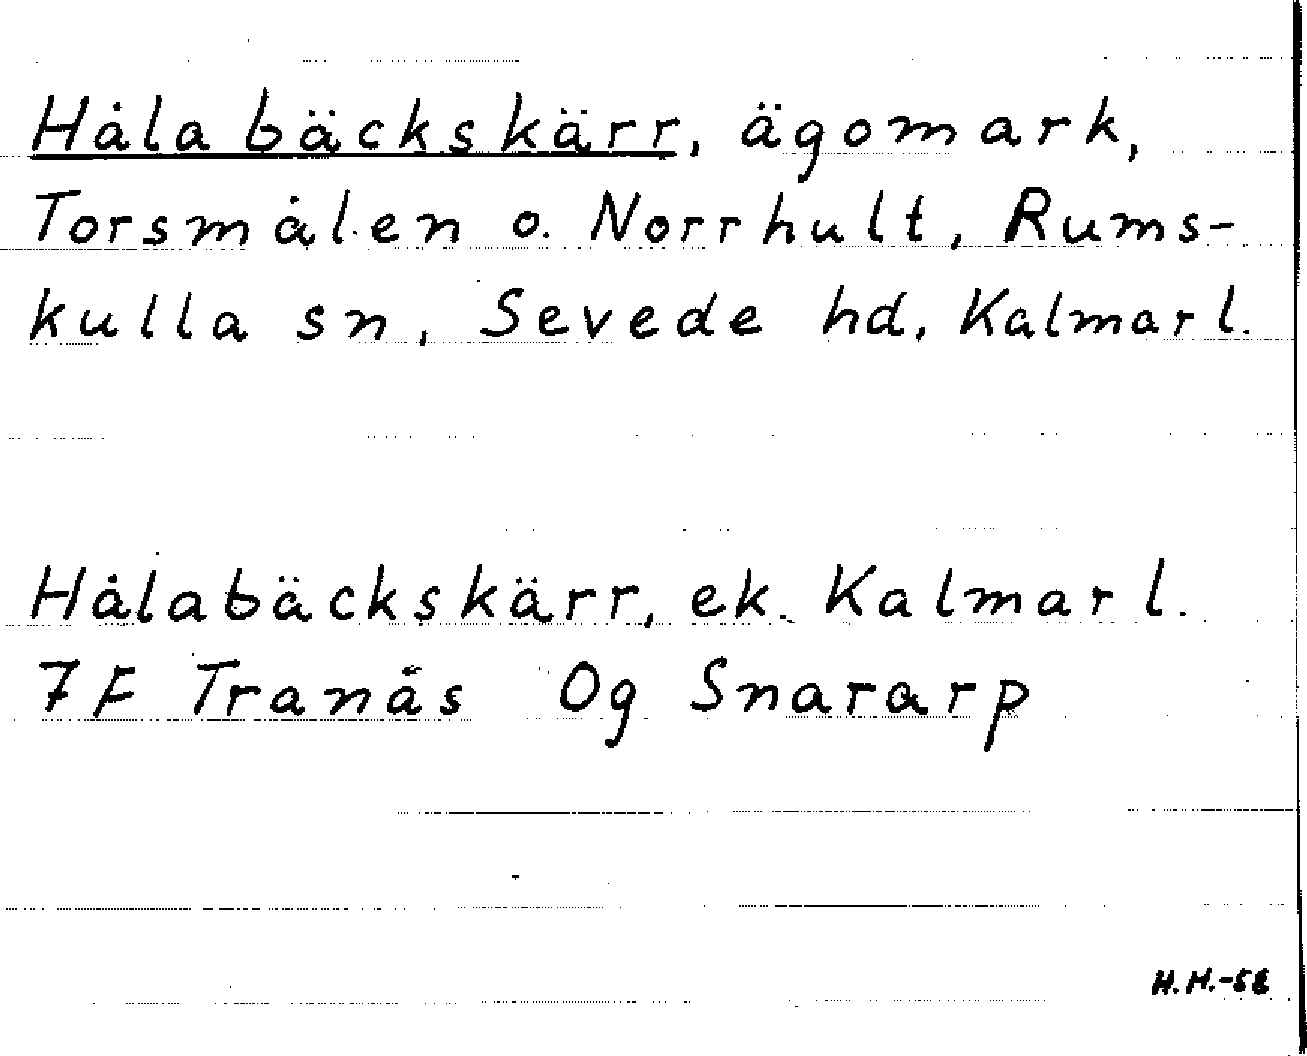 Hålabäckskärr, ägomark,
Torsmålen o. Norrhult, Rums-
kulla sn, Sevede hd, Kalmar l.
Hålabäckskärr, ek. Kalmar l.
7F Tranås Og Snararp